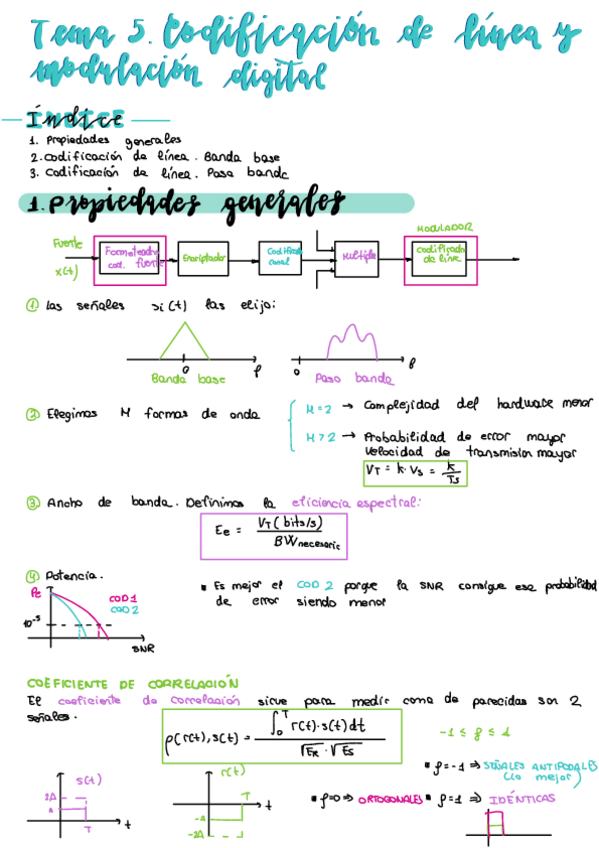 Tema 5. Codificación de línea y
modulación digital
Índice
1. Propiedades generales
2. Codificación de línea. Banda base
3. Codificación de línea. Paso banda
1. Propiedades generales
MODULADOR
Fuente
x(t)
Formateador
cod. fuente
Encriptador
Codificad
canal
Multiple
Codificado
de línea
① Las señales si(t) las elijo:
0 f
0 f
Banda base
Paso banda
② Elegimos M formas de onda
M = 2 → Complejidad del hardware menor
M > 2 → Probabilidad de error mayor
Velocidad de transmisión mayor
VT = k · Vs = k/Ts
③ Ancho de banda. Definimos la eficiencia espectral:
Ee = VT (bits/s) / BW necesario
④ Potencia.
Pe
COD 1
COD 2
10⁻⁵
SNR
▪ Es mejor el COD 2 porque la SNR consigue esa probabilidad
de error siendo menor
COEFICIENTE DE CORRELACIÓN
El coeficiente de correlación sirve para medir como de parecidas son 2
señales.
ρ(r(t), s(t)) = ∫₀ᵀ r(t) · s(t) dt / √ER · √Es
-1 ≤ ρ ≤ 1
▪ ρ = -1 ⇒ SEÑALES ANTIPODALES
(lo mejor)
▪ ρ=0 ⇒ ORTOGONALES ▪ ρ=1 ⇒ IDÉNTICAS
s(t)
2A
A
T
t
r(t)
T
t
-A
-2A